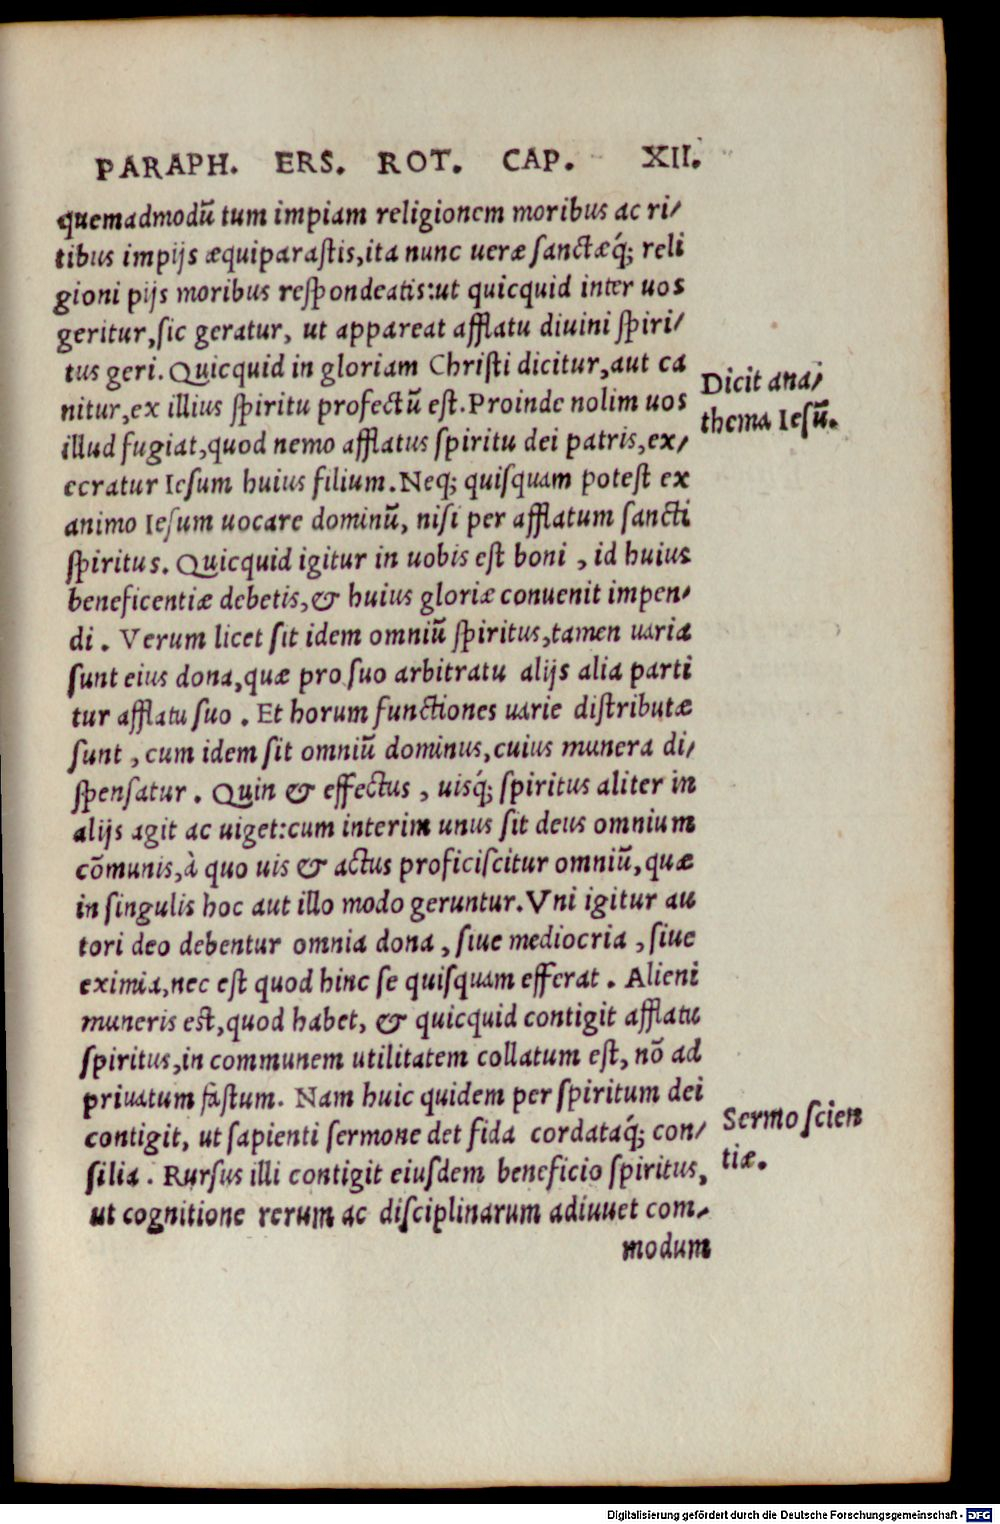 PARAPH. ERS. ROT. CAP. XII.
quemadmodū tum impiam religionem moribus ac ri/
tibus impijs æquiparaſtis,ita nunc ueræ ſanctæq́; reli
gioni pijs moribus reſpondeatis:ut quicquid inter uos
geritur,ſic geratur, ut appareat afflatu diuini ſpiri/
tus geri. Quicquid in gloriam Chriſti dicitur,aut ca
nitur,ex illius ſpiritu profectū eſt.Proinde nolim uos
illud fugiat,quod nemo afflatus ſpiritu dei patris,ex/
ecratur Ieſum huius filium.Neq; quiſquam poteſt ex
animo Ieſum uocare dominū, niſi per afflatum ſancti
ſpiritus. Quicquid igitur in uobis eſt boni , id huius
beneficentiæ debetis,& huius gloriæ conuenit impen/
di . Verum licet ſit idem omniū ſpiritus,tamen uaria
ſunt eius dona,quæ pro ſuo arbitratu alijs alia parti
tur afflatu ſuo . Et horum functiones uarie diſtributæ
ſunt , cum idem ſit omniū dominus,cuius munera di/
ſpenſatur . Quin & effectus , uisq́; ſpiritus aliter in
alijs agit ac uiget:cum interim unus ſit deus omnium
cōmunis,à quo uis & actus proficiſcitur omniū,quæ
in ſingulis hoc aut illo modo geruntur.Vni igitur au
tori deo debentur omnia dona , ſiue mediocria , ſiue
eximia,nec eſt quod hinc ſe quiſquam efferat . Alieni
muneris eſt,quod habet, & quicquid contigit afflatu
ſpiritus,in communem utilitatem collatum eſt, nō ad
priuatum faſtum. Nam huic quidem per ſpiritum dei
contigit, ut ſapienti ſermone det fida cordataq́; con/
ſilia . Rurſus illi contigit eiuſdem beneficio ſpiritus,
ut cognitione rerum ac diſciplinarum adiuuet com/
modum
Dicit ana/
thema Ieſū.
Sermo ſcien
tiæ.
Digitalisierung gefördert durch die Deutsche Forschungsgemeinschaft - DFG